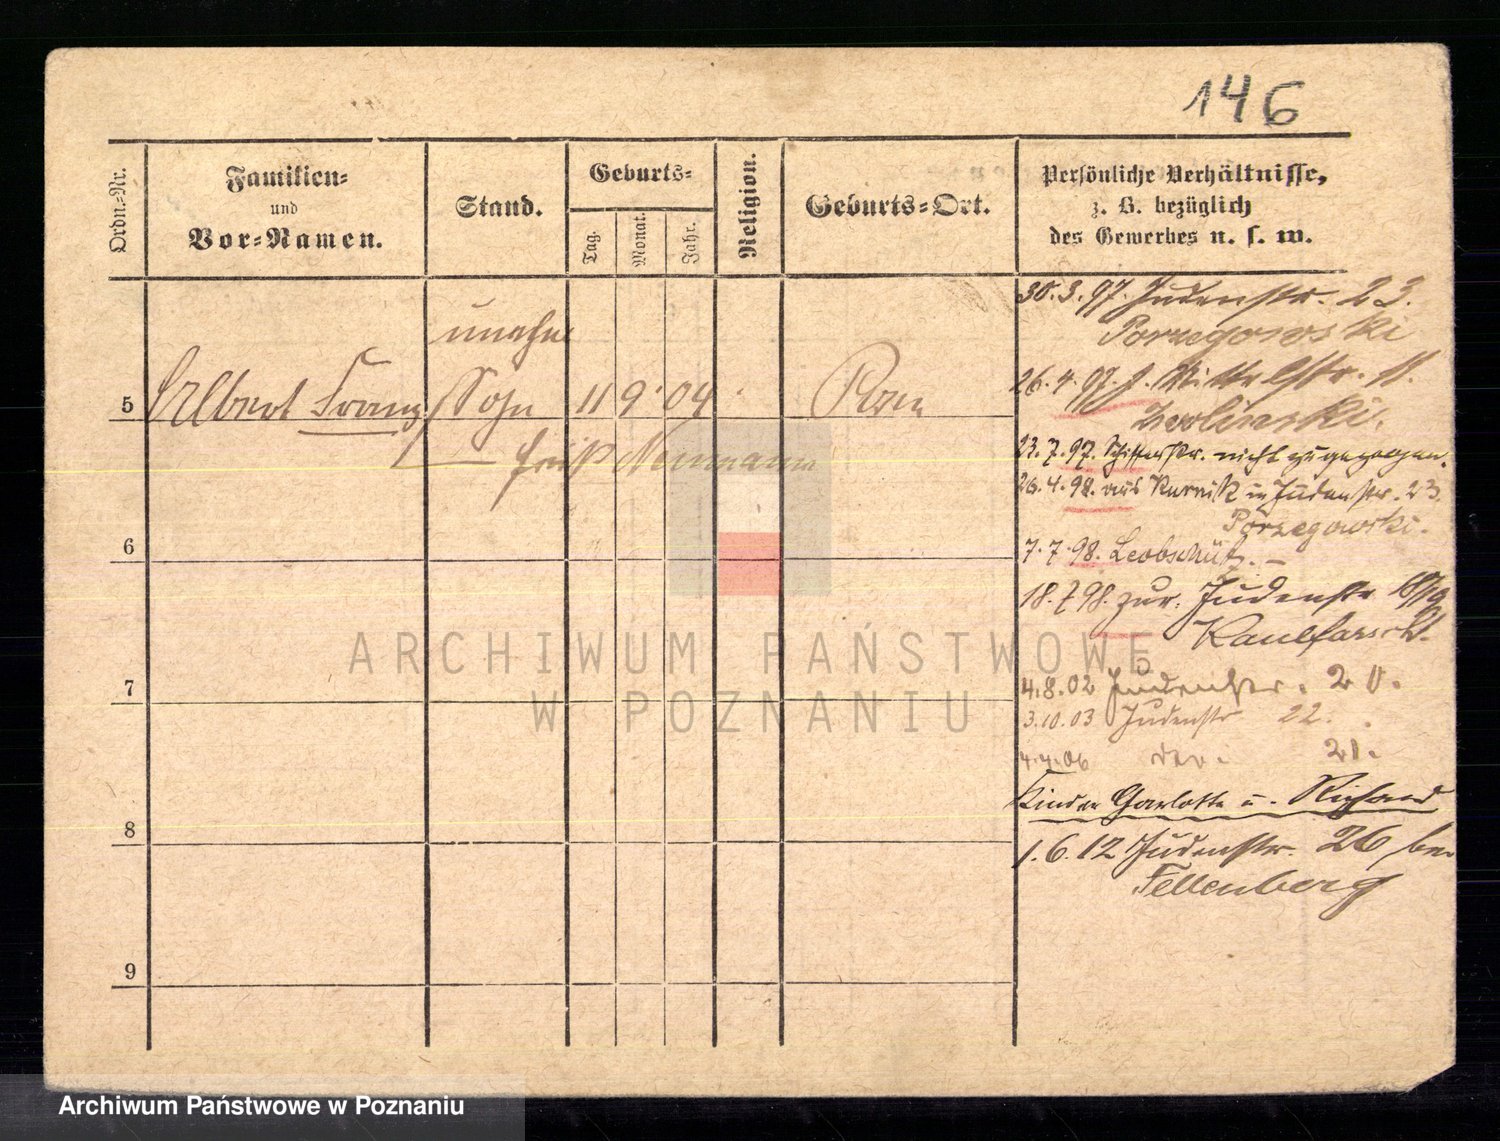 146
Ordn.-Nr.
Familien-
und
Vor-Namen.
Stand.
Geburts-
Tag.
Monat.
Jahr.
Religion.
Geburts-Ort.
Persönliche Verhältnisse,
z. B. bezüglich
des Gewerbes u. s. w.
30.3.97. Judenstr. 23.
Porzegowski
26.4.97. Mittelstr. 11.
Wolinski.
23.7.97. Schifferstr. nicht zugezogen.
26.4.98. aus Kurnik in Judenstr. 23
Porzegowski.
7.7.98. Leobschütz. –
18.7.98. zur. Judenstr
4.8.02 Judenstr. 20.
3.10.03 Judenstr 22.
4.4.06 21.
Kinder Charlotte u. Richard
1.6.12 Judenstr. 26 bei
Fellenberg
unehe
5 Albert Franz Sohn 11 9 04 Posen
heißt Neumann
6
7
8
9
ARCHIWUM PAŃSTWOWE
W POZNANIU
Archiwum Państwowe w Poznaniu